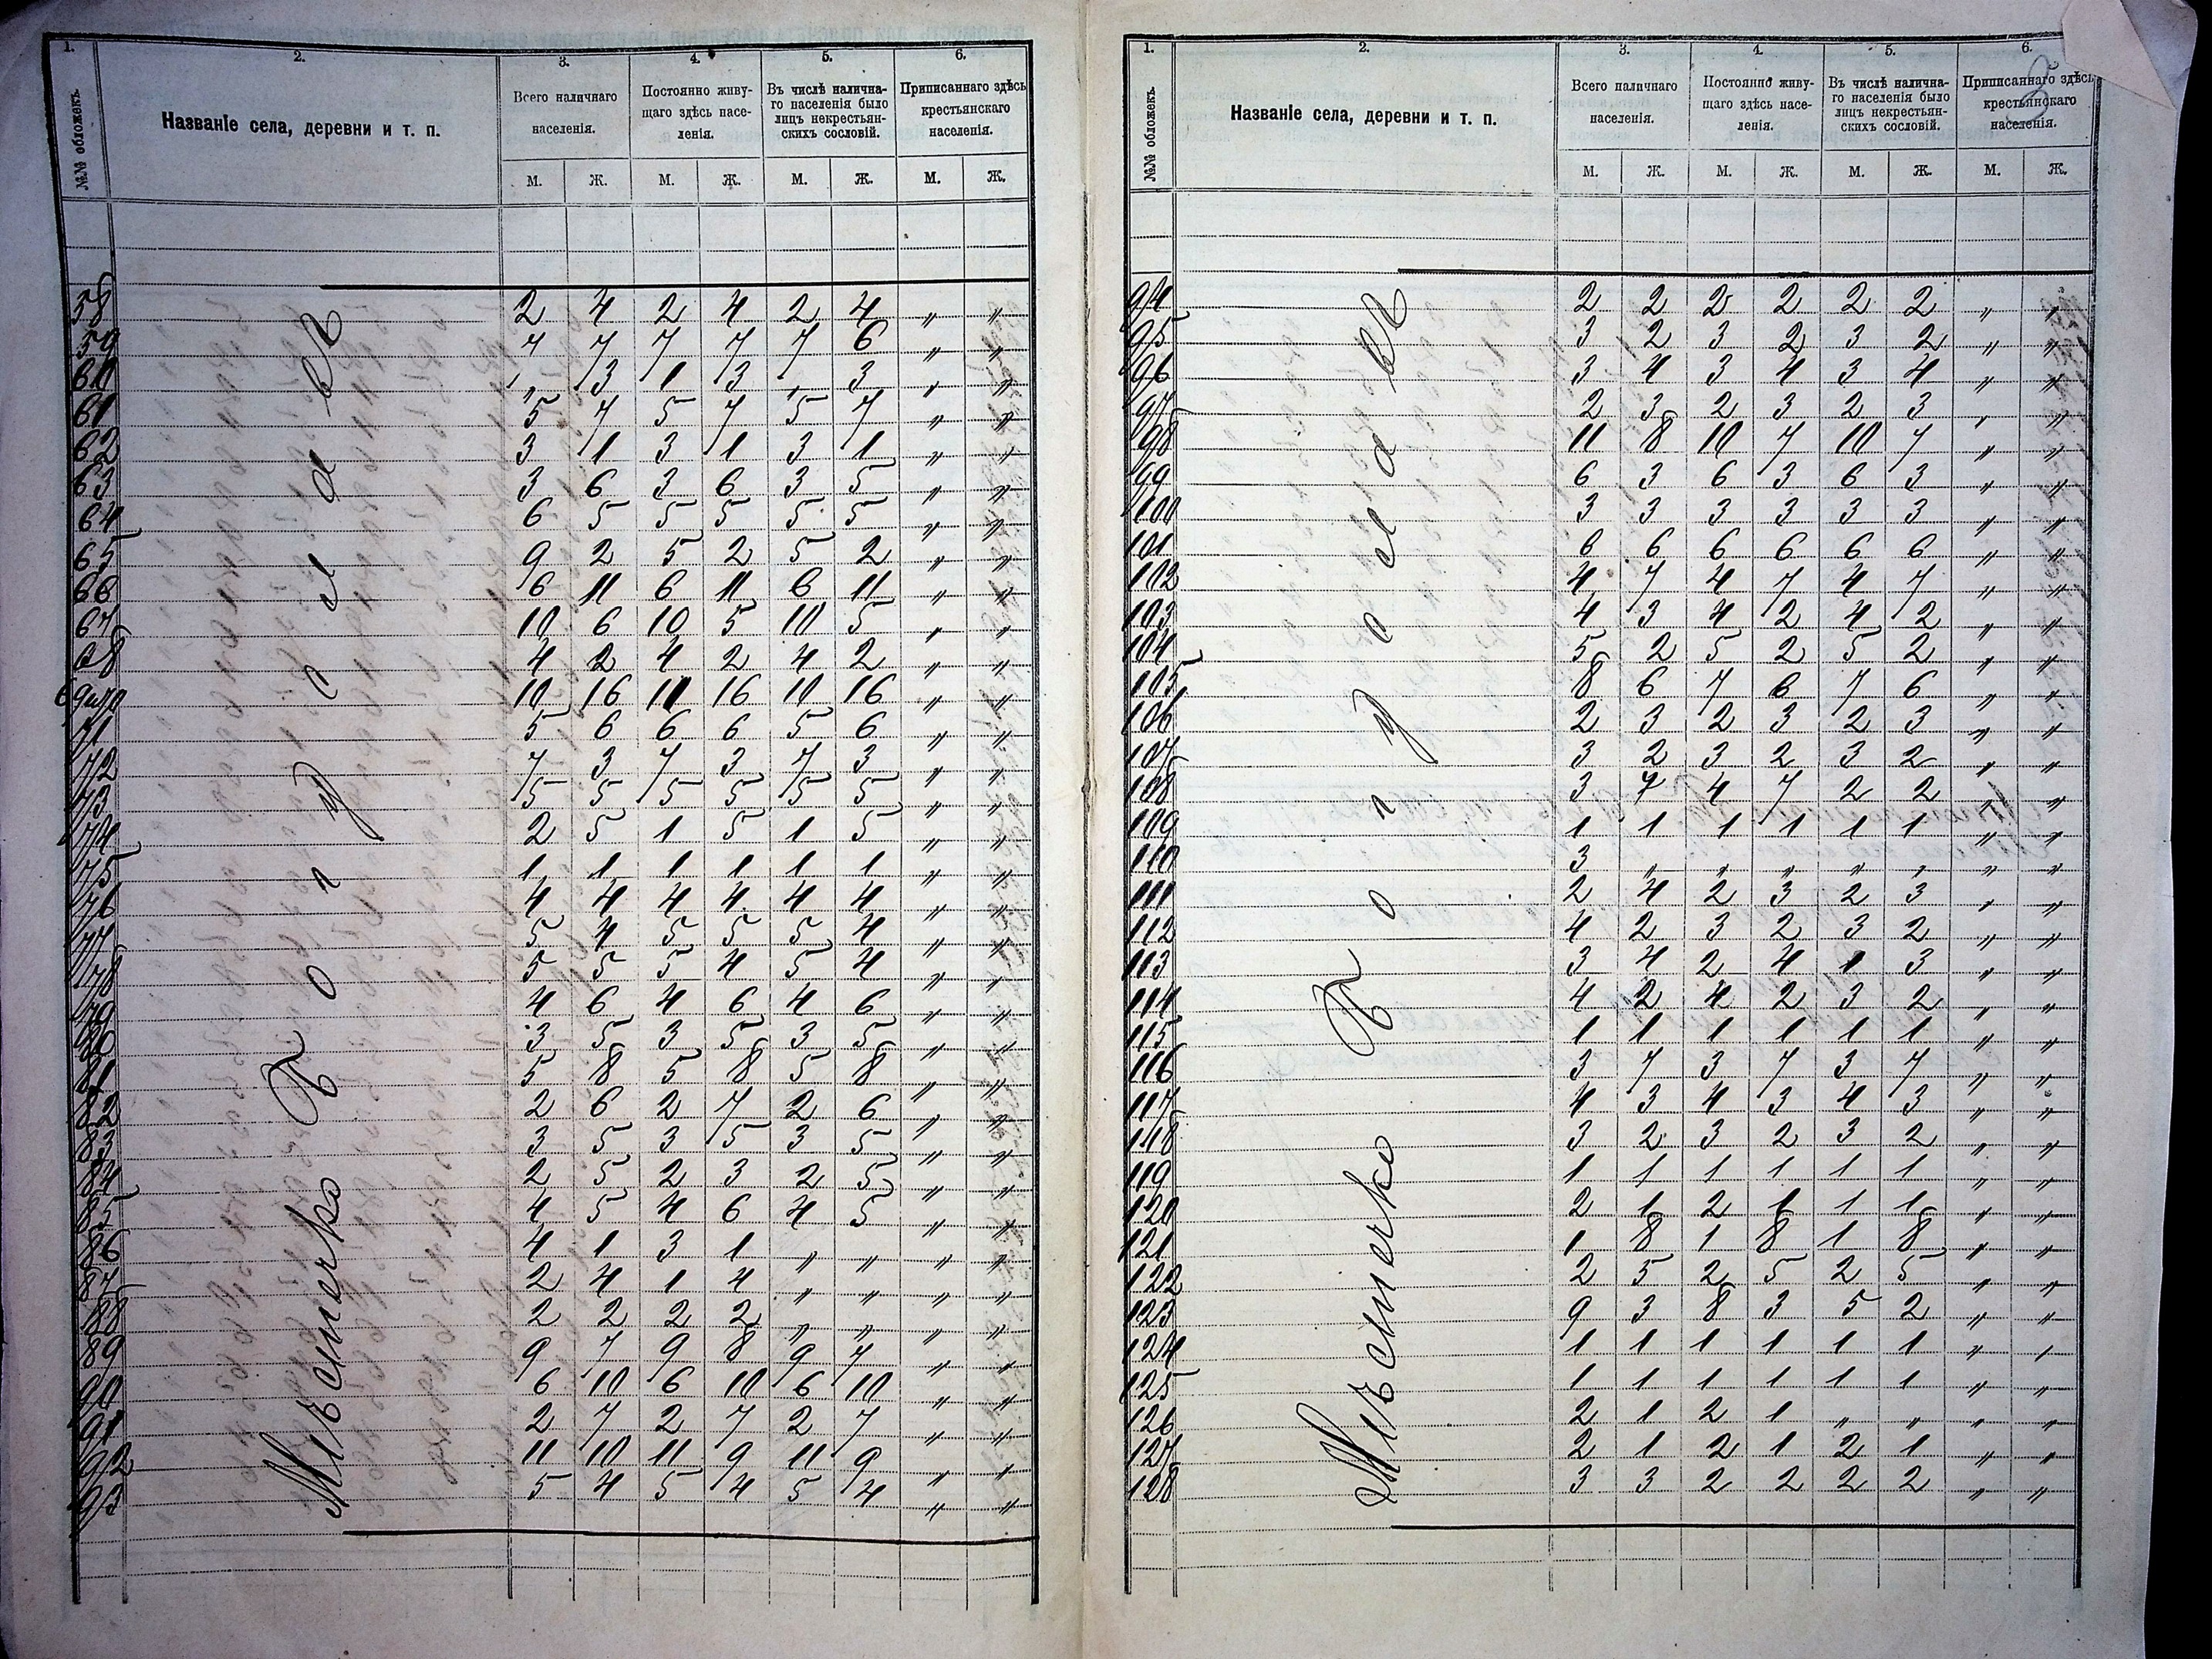 1. 2. 3. 4. 5. 6.
№№ обложекъ. Названіе села, деревни и т. п. Всего наличнаго населенія. Постоянно живущаго здѣсь населенія. Въ числѣ наличнаго населенія было лицъ некрестьянскихъ сословій. Приписаннаго здѣсь крестьянскаго населенія.
М. Ж. М. Ж. М. Ж. М. Ж.
58 2 4 2 4 2 4 " "
59 7 7 7 7 7 6 " "
60 " 3 1 3 " 3 " "
61 5 7 5 7 5 7 " "
62 3 1 3 1 3 1 " "
63 3 6 3 6 3 5 " "
64 6 5 5 5 5 5 " "
65 9 2 5 2 5 2 " "
66 6 11 6 11 6 11 " "
67 10 6 10 5 10 5 " "
68 4 2 4 2 4 2 " "
69и70 10 16 11 16 10 16 " "
71 5 6 6 6 5 6 " "
72 7 3 7 3 7 3 " "
73 5 5 5 5 5 5 " "
74 2 5 1 5 1 5 " "
75 1 1 1 1 1 1 " "
76 4 4 4 4 4 4 " "
77 5 4 5 5 5 4 " "
78 5 5 5 4 5 4 " "
79 4 6 4 6 4 6 " "
80 3 5 3 5 3 5 " "
81 5 8 5 8 5 8 " "
82 2 6 2 7 2 6 " "
83 3 5 3 5 3 5 " "
84 2 5 2 3 2 5 " "
85 4 5 4 6 4 5 " "
86 4 1 3 1 " " " "
87 2 4 1 4 " " " "
88 2 2 2 2 " " " "
89 9 7 9 8 9 7 " "
90 6 10 6 10 6 10 " "
91 2 7 2 7 2 7 " "
92 11 10 11 9 11 9 " "
93 5 4 5 4 5 4 " "
Мѣстечко
1. 2. 3. 4. 5. 6.
№№ обложекъ. Названіе села, деревни и т. п. Всего наличнаго населенія. Постоянно живущаго здѣсь населенія. Въ числѣ наличнаго населенія было лицъ некрестьянскихъ сословій. Приписаннаго здѣсь крестьянскаго населенія.
М. Ж. М. Ж. М. Ж. М. Ж.
94 2 2 2 2 2 2 " "
95 3 2 3 2 3 2 " "
96 3 4 3 4 3 4 " "
97 2 3 2 3 2 3 " "
98 11 8 10 7 10 7 " "
99 6 3 6 3 6 3 " "
100 3 3 3 3 3 3 " "
101 6 6 6 6 6 6 " "
102 4 7 4 7 4 7 " "
103 4 3 4 2 4 2 " "
104 5 2 5 2 5 2 " "
105 8 6 7 6 7 6 " "
106 2 3 2 3 2 3 " "
107 3 2 3 2 3 2 " "
108 3 7 4 7 2 2 " "
109 1 1 1 1 1 1 " "
110 3 " " " " " " "
111 2 4 2 3 2 3 " "
112 4 2 3 2 3 2 " "
113 3 4 2 4 1 3 " "
114 4 2 4 2 3 2 " "
115 1 1 1 1 1 1 " "
116 3 7 3 7 3 7 " "
117 4 3 4 3 4 3 " "
118 3 2 3 2 3 2 " "
119 1 1 1 1 1 1 " "
120 2 1 2 1 1 1 " "
121 1 8 1 8 1 8 " "
122 2 5 2 5 2 5 " "
123 9 3 8 3 5 2 " "
124 1 1 1 1 1 1 " "
125 1 1 1 1 1 1 " "
126 2 1 2 1 " " " "
127 2 1 2 1 2 1 " "
128 3 3 2 2 2 2 " "
Мѣстечко